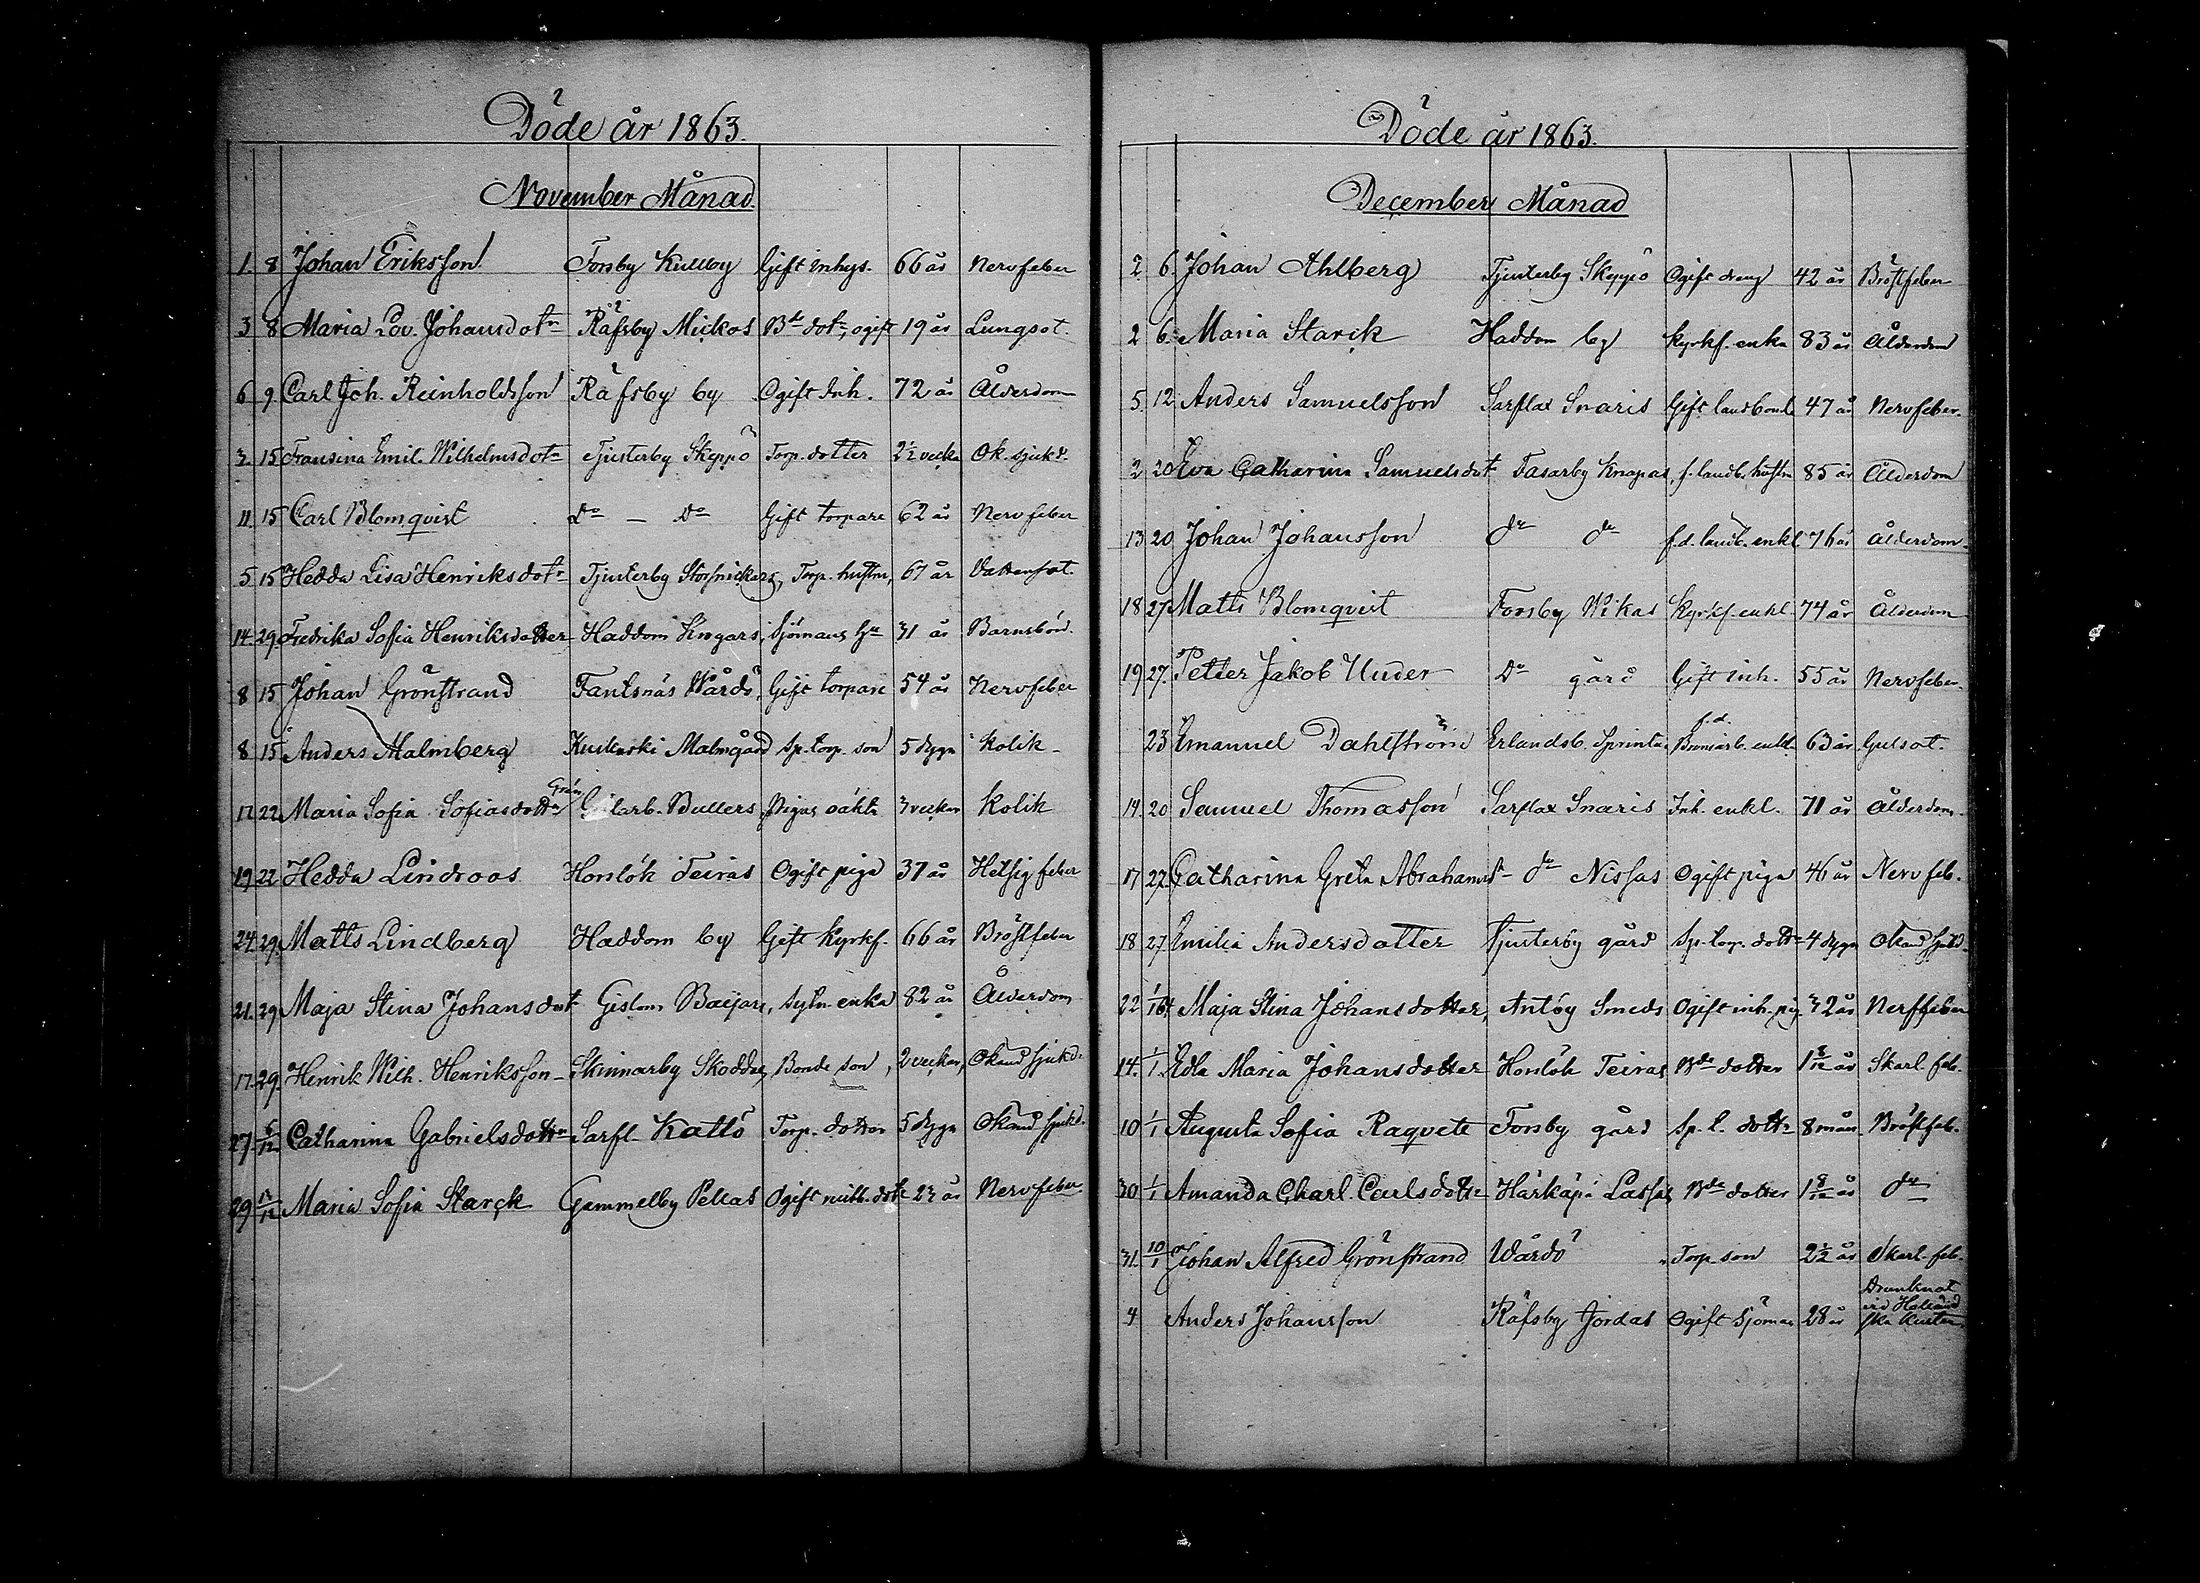 Döde år 1863.
November Månad.
1. 8 Johan Eriksson Forsby Kullby Gift Inhys. 66 år Nervfeber
3 8 Maria Lov. Johansdotr Räfsby Mickos Bde dotr, ogift 19 år Lungsot.
6 9 Carl Joh. Reinholdsson Räfsby by Ogift Inh. 72 år Ålderdom
3. 15 Fransina Emil. Wilhelmsdotr Tjusterby Skeppö Torp. dotter 2½ vecka Ok. sjukd.
11. 15 Carl Blomqvist Do — Do Gift torpare 62 år Nervfeber
5 15 Hedda Lisa Henriksdotr Tjusterby Storsnickars, Torp. hustru, 67 år Vattensot.
14. 29. Fredrika Sofia Henriksdotter Haddom Kingars, Sjömans hu 31 år Barnsbörd.
8 15 Johan Grönstrand Fantsnäs Wårdö, Gift torpare 54 år Nervfeber
8 15 Anders Malmberg Malmgård Sp. torp. son 5 dygn Kolik
17 22 Maria Sofia Sofiasdotter Grön Gislarb. Bullers Pigas oäkta 3 veckor Kolik
19 22 Hedda Lindroos Honlök Teiras Ogift piga 37 år Hetsig feber
24. 29. Matts Lindberg Haddom by Gift Kyrkf. 66 år Bröstfeber
21. 29 Maja Stina Johansdot Gislom Baijars, Sytn. enka 82 år Ålderdom
17. 29. Henrik Wilh. Henriksson Skinnarby Skoddas, Bonde son, 2 veckor, Okänd sjukd.
27. 6/12 Catharina Gabrielsdotter Sarfl. Kattö Torp. dotter 5 dygn Okänd sjukd.
29 13/12 Maria Sofia Starck Gammelby Pellas Ogift dotr 23 år Nervfeber
Döde år 1863.
December Månad
2 6. Johan Ahlberg Tjusterby Skeppö Ogift dreng 42 år Bröstfeber
2 6. Maria Starck Haddom by Kyrkf. enka 83 år Ålderdom
5. 12 Anders Samuelsson Sarflax Snaris Gift landbonde 47 år Nervfeber.
2 20 Eva Catharina Samuelsdot Fasarby Knapas, f. landb. hustru 85 år Ålderdom
13 20 Johan Johansson do do f.d. landb. enkl 76 år Ålderdom.
18 27. Matts Blomqvist Forsby Wikas Kyrkf. enkl 74 år Ålderdom
19 27. Petter Jakob Under Do gård Gift inh. 55 år Nervfeber.
23 Emanuel Dahlström Erlandsb. f.d. enkl. 63 år Gulsot.
14. 20 Samuel Thomasson Sarflax Snaris Inh. enkl. 71 år Ålderdom.
17 27. Catharina Greta Abrahamsdr do Nissas Ogift piga 46 år Nervfeb.
18 27 Emilia Andersdotter Tjusterby gård Sp. torp. dottr 4 dygn Okänd sjukd.
22 1/1 64 Maja Stina Johansdotter, Antby Smeds Ogift inh. pig. 32 år Nervfeber
14. 1/1. Edla Maria Johansdotter Honlök Teiras Bde dotter 1 8/12 år Skarl. feb.
10 1/1 Augusta Sofia Raqvete Forsby gård Sp. t. dottr 8 mån. Bröstfeb.
30 1/1 Amanda Charl. Carlsdotr Härkäpä Lassas Bde dotter 1 8/12 år do
31. 10/1 Johan Alfred Grönstrand Wårdö Torp. son 2½ år Skarl. feb.
4 Anders Johansson Räfsby Jordas Ogift Sjöman 28 år Drunknat vid Holländska kusten.